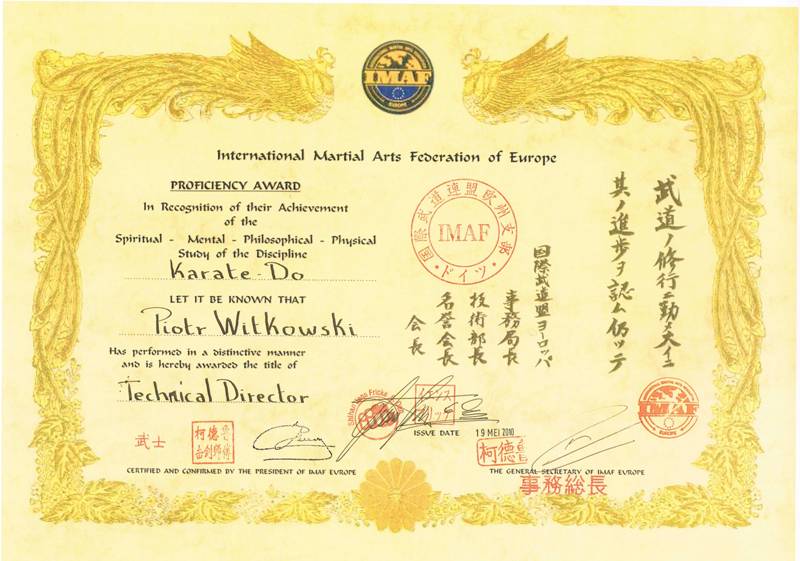 IMAF
EUROPE
International Martial Arts Federation of Europe
PROFICIENCY AWARD
In Recognition of their Achievement
of the
Spiritual - Mental - Philosophical - Physical
Study of the Discipline
Karate-Do
LET IT BE KNOWN THAT
Piotr Witkowski
Has performed in a distinctive manner
and is hereby awarded the title of
Technical Director
国際武道連盟欧州支部
IMAF
・ドイツ・
武道ノ修行ニ勤メ大イニ
其ノ進歩ヲ認ム仍ッテ
国際武道盟ヨーロッパ
事務局長
技術部長
名誉会長
会長
IMAF
武士
ISSUE DATE
19 MEI 2010
柯德
CERTIFIED AND CONFIRMED BY THE PRESIDENT OF IMAF EUROPE
THE GENERAL SECRETARY OF IMAF EUROPE
事務総長